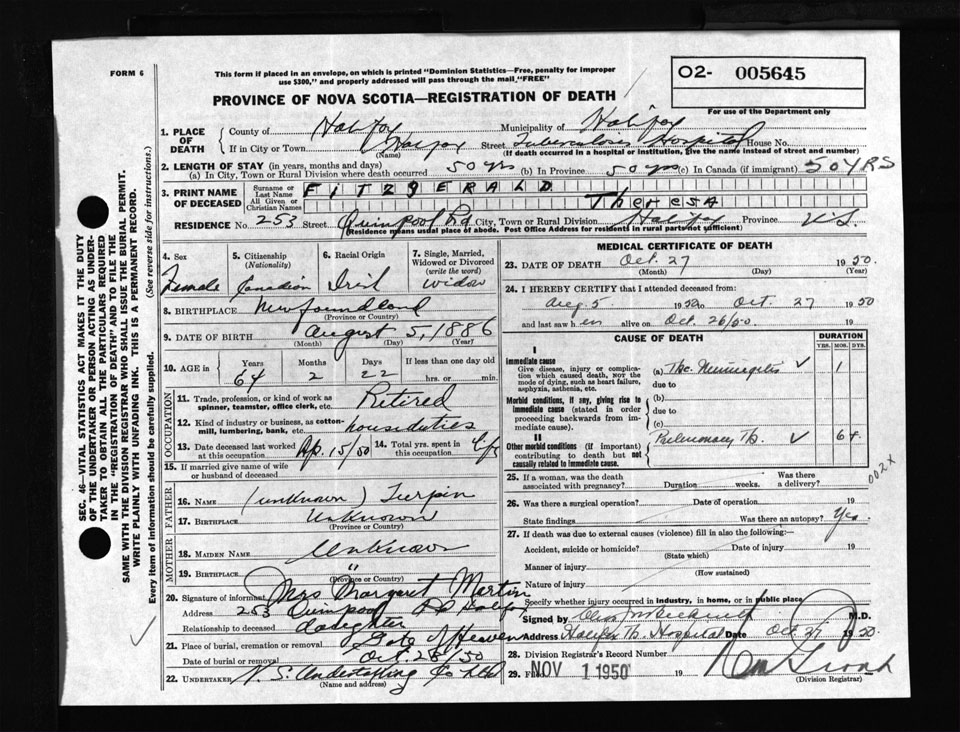 FORM 6
This form if placed in an envelope, on which is printed "Dominion Statistics—Free, penalty for improper
use $300," and properly addressed will pass through the mail "FREE"
O2- 005645
For use of the Department only
PROVINCE OF NOVA SCOTIA—REGISTRATION OF DEATH
1. PLACE OF DEATH
County of Halifax Municipality of Halifax
If in City or Town Halifax (Name) Street Tuberculosis Hospital House No.
(If death occurred in a hospital or institution, give the name instead of street and number)
2. LENGTH OF STAY (in years, months and days)
(a) In City, Town or Rural Division where death occurred 50 yrs (b) In Province 50 yrs (c) In Canada (if immigrant) 50 YRS
3. PRINT NAME OF DECEASED
Surname or Last Name FITZGERALD
All Given or Christian Names Theresa
RESIDENCE No. 253 Street Quinpool Rd City, Town or Rural Division Halifax Province N.S.
(Residence means usual place of abode. Post Office Address for residents in rural parts not sufficient)
4. Sex Female
5. Citizenship (Nationality) Canadian
6. Racial Origin Irish
7. Single, Married, Widowed or Divorced (write the word) widow
8. BIRTHPLACE Newfoundland
(Province or Country)
9. DATE OF BIRTH August 5, 1886
(Month) (Day) (Year)
10. AGE in Years 64 Months 2 Days 22 If less than one day old hrs. or min.
OCCUPATION
11. Trade, profession, or kind of work as spinner, teamster, office clerk, etc. Retired
12. Kind of industry or business, as cotton-mill, lumbering, bank, etc. houseduties
13. Date deceased last worked at this occupation Ap. 15/50 14. Total yrs. spent in this occupation
15. If married give name of wife or husband of deceased
FATHER
16. Name (unknown) Turpin
17. Birthplace Unknown
(Province or Country)
MOTHER
18. Maiden Name Unknown
19. Birthplace "
(Province or Country)
20. Signature of informant Mrs Margaret Martin
Address 253 Quinpool Rd Halifax
Relationship to deceased daughter
21. Place of burial, cremation or removal Gate of Heaven
Date of burial or removal Oct. 28/50
22. Undertaker N. S. Undertaking Co Ltd
(Name and address)
MEDICAL CERTIFICATE OF DEATH
23. DATE OF DEATH Oct. 27 1950.
(Month) (Day) (Year)
24. I HEREBY CERTIFY that I attended deceased from:
Aug. 5 1950 to Oct. 27 1950
and last saw her alive on Oct. 26/50. 19
CAUSE OF DEATH
DURATION
YRS. MOS. DYS.
I
Immediate cause
Give disease, injury or complication which caused death, NOT the mode of dying, such as heart failure, asphyxia, asthenia, etc.
(a) Tbc. Meningitis ✓ 1
due to
Morbid conditions, if any, giving rise to immediate cause (stated in order proceeding backwards from immediate cause).
(b)
due to
(c)
II
Other morbid conditions (if important) contributing to death but not causally related to immediate cause.
Pulmonary Tb. ✓ 6+
002X
25. If a woman, was the death associated with pregnancy? Duration weeks. Was there a delivery?
26. Was there a surgical operation? Date of operation 19
State findings Was there an autopsy? Yes
27. If death was due to external causes (violence) fill in also the following:—
Accident, suicide or homicide? Date of injury 19
(State which)
Manner of injury
(How sustained)
Nature of injury
Specify whether injury occurred in industry, in home, or in public place
Signed by M.D.
Address Halifax Tb. Hospital Date Oct 27 1950.
28. Division Registrar's Record Number
29. Filed NOV 1 1950 19
(Division Registrar)
SEC. 46—VITAL STATISTICS ACT MAKES IT THE DUTY
OF THE UNDERTAKER OR PERSON ACTING AS UNDER-
TAKER TO OBTAIN ALL THE PARTICULARS REQUIRED
IN THE "REGISTRATION OF DEATH" AND TO FILE THE
SAME WITH THE DIVISION REGISTRAR WHO SHALL ISSUE THE BURIAL PERMIT.
WRITE PLAINLY WITH UNFADING INK. THIS IS A PERMANENT RECORD.
Every item of information should be carefully supplied. (See reverse side for instructions.)